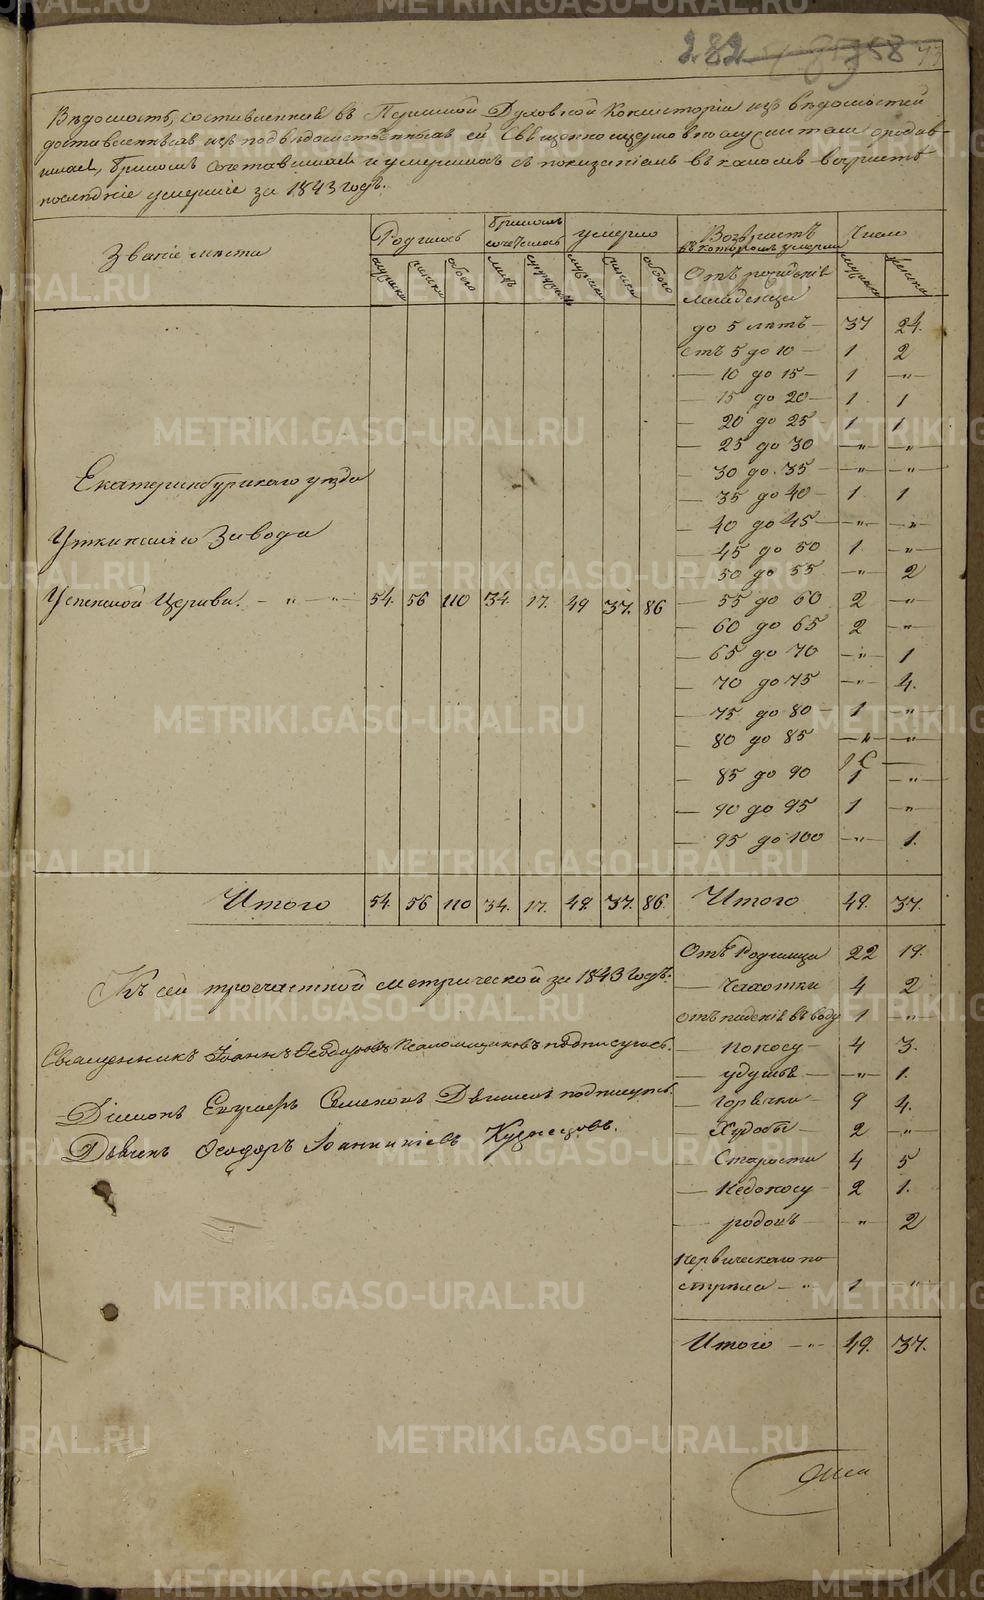 282 58
Вѣдомость, составленной въ Пермской Духовной Консисторіи изъ вѣдомостей
доставленныхъ изъ подвѣдомственныхъ ей Священноцерковнослужителями о родив
шихся, бракомъ сочетавшихся и умершихъ съ показаніемъ въ какомъ возрастѣ
послѣдніе умершіе за 1843 годъ.
Званіе мѣста Родилось бракомъ сочеталось умерло Возрастъ въ которомъ умерли Число
мужска женска обоего лицъ супруж. мужска женска обоего Отъ рожденія младенца мужска женска
до 5 лѣтъ — 37 24.
отъ 5 до 10 — 1 2
— 10 до 15 — 1 — „ —
— 15 до 20 — 1 1
— 20 до 25 1 1
— 25 до 30 — „ — — „ —
— 30 до 35 — — „ — — „ —
— 35 до 40 — 1 1
— 40 до 45 — — „ — — „ —
— 45 до 50 1 — „ —
— 50 до 55 — „ — 2
Екатеринбургскаго уѣзда
Уткинскаго Завода
Успенской Церкви. — „ — „ — 54. 56 110 34. 17. 49 37. 86
— 55 до 60 2 — „ —
— 60 до 65 2 — „ —
— 65 до 70 — „ — 1
— 70 до 75 — „ — 4.
— 75 до 80 — 1 — „ —
— 80 до 85 — „ — — „ —
— 85 до 90 1 — „ —
— 90 до 95 1 — „ —
— 95 до 100 — „ — 1.
Итого 54. 56 110 34. 17. 49. 37. 86. Итого 49. 37.
Отъ Родимца 22 19.
— Чахотки 4 2
отъ паденія въ воду 1 — „ —
— поносу — 4 3.
— удушья — — „ — 1.
— Горячки — 9 4.
— Худобы — 2 — „ —
— Старости 4 5
— Недоносу 2 1.
— родовъ „ 2
Нервическаго по
стрѣла — „ 1 „
Итого — „ — 49. 37.
Къ сей троечастной метрической за 1843 годъ.
Священникъ Іоаннъ Ѳеодоровъ Псаломщиковъ подписуюсь.
Діаконъ
Дьячекъ Ѳеодоръ Іоанникіевъ Кузнецовъ.
METRIKI.GASO-URAL.RU